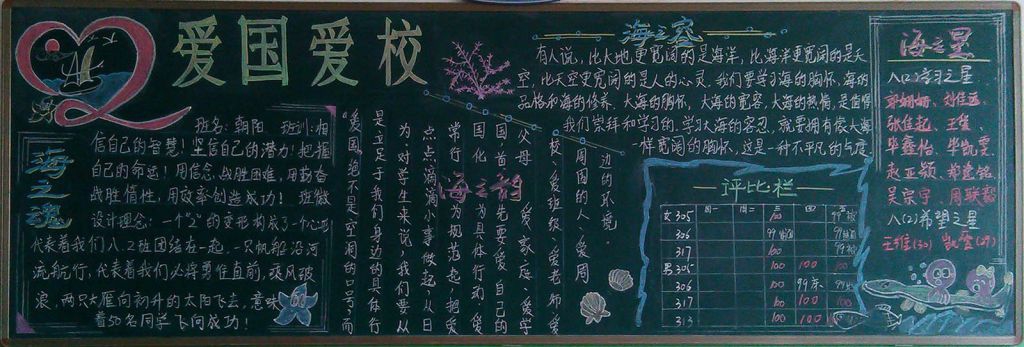 爱国爱校
海之魂
班名:朝阳 班训:相
信自己的智慧!坚信自己的潜力!把握
自己的命运!用信念,战胜困难,用勤奋
战胜惰性,用效率创造成功! 班徽
设计理念:一个"2"的变形构成了一个心形
代表着我们八、2班团结在一起,一只帆船沿河
流航行,代表着我们必将勇往直前,乘风破
浪,两只大雁向初升的太阳飞去,意味
着50名同学飞向成功!
海之韵
"爱国"绝不是空洞的口号,而
是立足于我们身边的具体行
为,对学生来说,我们要从
点点滴滴小事做起,从日
常行为规范起,把爱
国化为具体行动,爱
国,首先要爱自己的
父母、爱家庭、爱学
校、爱班级、爱老师、爱
周围的人、爱周
边的环境。
海之容
有人说,比大地更宽阔的是海洋,比海洋更宽阔的是天
空,比天空更宽阔的是人的心灵。我们要学习海的胸怀,海的
品格和海的修养。大海的胸怀,大海的宽容,大海的热情,是值得
我们崇拜和学习的,学习大海的容忍,就要拥有像大海
一样宽阔的胸怀,这是一种不平凡的气度
评比栏
周一 周二 周三 四
女305 100
306 99
317 100
男305 100 100 100
306 100 99 100
317 100 100 100
313 100 100
海之星
八(2)学习之星
八(2)希望之星